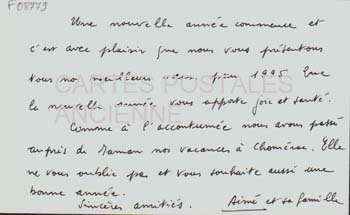 F08779
Une nouvelle année commence et
c'est avec plaisir que nous vous présentons
tous nos meilleurs vœux pour 1995. Que
la nouvelle année vous apporte joie et santé.
Comme à l'accoutumée nous avons passé
auprès de Maman nos vacances à Chomérac. Elle
ne vous oublie pas et vous souhaite aussi une
bonne année.
Sincères amitiés. Aimé et sa famille
CARTES POSTALES
ANCIENNE